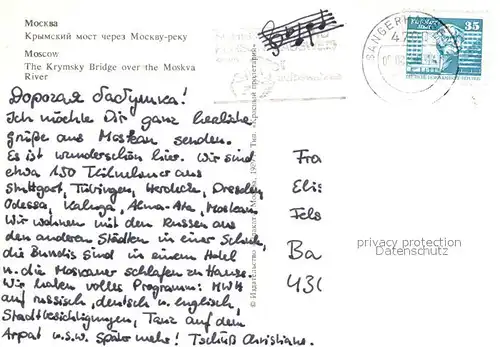 Москва
Крымский мост через Москву-реку
Moscow
The Krymsky Bridge over the Moskva
River
Дорогая бабушка!
Ich möchte Dir ganz herzliche
Grüße aus Moskau senden.
Es ist wunderschön hier. Wir sind
etwa 150 Teilnehmer aus
Stuttgart, Tübingen, Herdecke, Dresden,
Odessa, Kaluga, Alma-Ata, Moskau.
Wir wohnen mit den Russen aus
den anderen Städten in einer Schule,
die Bundis sind in einem Hotel
u. die Moskauer schlafen zu Hause.
Wir haben volles Programm:
auf russisch, deutsch u. englisch,
Stadtbesichtigungen, Tanz auf dem
Arpat u.s.w. Später mehr! Tschüß Christiane.
© Издательство Москва. 1989. Тип. «Красный пролетарий»
SANGERH
47
35
Fra
Elis
Fels
Ba
430
privacy protection
Datenschutz